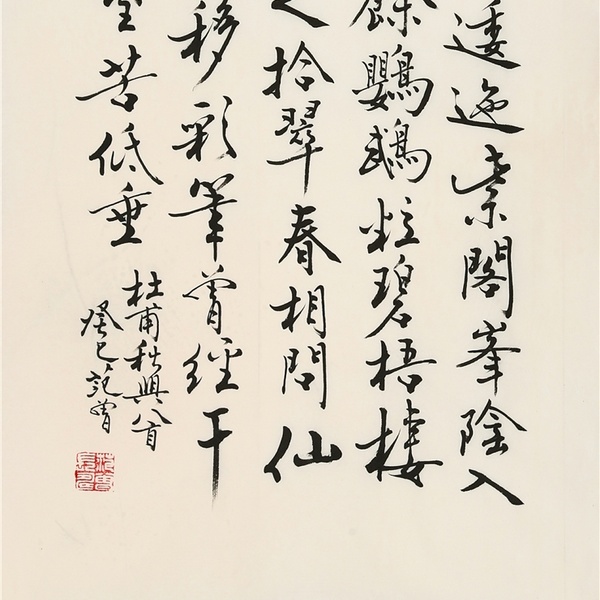 逶迤紫閣峯陰入
餘鸚鵡粒碧梧棲
拾翠春相問仙
移彩筆曾經干
苦低垂
杜甫秋興八首
癸巳范曾